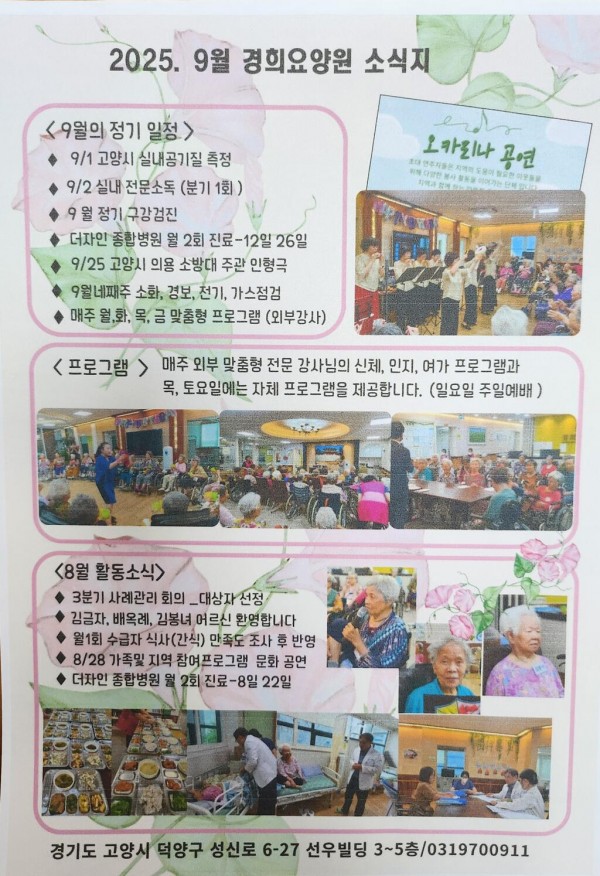 2025. 9월 경희요양원 소식지
〈 9월의 정기 일정 〉
♦ 9/1 고양시 실내공기질 측정
♦ 9/2 실내 전문소독 (분기 1회 )
♦ 9 월 정기 구강검진
♦ 더자인 종합병원 월 2회 진료-12일 26일
♦ 9/25 고양시 의용 소방대 주관 인형극
♦ 9월네째주 소화, 경보, 전기, 가스점검
♦ 매주 월,화, 목, 금 맞춤형 프로그램 (외부강사)
오카리나 공연
〈 프로그램 〉 매주 외부 맞춤형 전문 강사님의 신체, 인지, 여가 프로그램과
목, 토요일에는 자체 프로그램을 제공합니다. (일요일 주일예배 )
〈8월 활동소식〉
♦ 3분기 사례관리 회의 _대상자 선정
♦ 김금자, 배옥례, 김봉녀 어르신 환영합니다
♦ 월1회 수급자 식사(간식) 만족도 조사 후 반영
♦ 8/28 가족및 지역 참여프로그램 문화 공연
♦ 더자인 종합병원 월 2회 진료-8일 22일
경기도 고양시 덕양구 성신로 6-27 선우빌딩 3~5층/0319700911